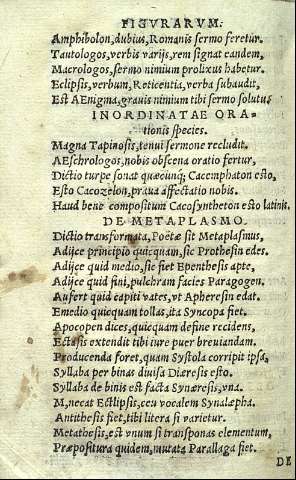 FIGVRARVM.
Amphibolon, dubius, Romanis sermo feretur.
Tautologos, verbis varijs, rem signat eandem,
Macrologos, sermo nimium prolixus habetur.
Eclipsis, verbum, Reticentia, verba subaudit,
Est AEnigma, grauis nimium tibi sermo solutus
INORDINATAE ORA=
tionis species.
Magna Tapinosis, tenui sermone recludit.
AEschrologos, nobis obscena oratio fertur,
Dictio turpe sonat quæcunq; Caccenphaton esto,
Esto Cacozelon, praua affectatio nobis.
Haud bene compositum Cacosyntheton esto latinis.
DE METAPLASMO.
Dictio transformata, Poëtæ sit Metaplasmus,
Adijce principio quicquam, sic Prothesin edes.
Adijce quid medio, sic fiet Epenthesis apte,
Adijce quid fini, pulchram facies Paragogen.
Aufert quid capiti vates, vt Apheresin edat.
Emedio quicquam tollas, ita Syncopa fiet.
Apocopen dices, quicquam define recidens,
Ectasis extendit tibi iure puer breuiandam.
Producenda foret, quam Systola corripit ipsa,
Syllaba per binas diuisa Diæresis esto.
Syllaba de binis est facta Synæresis, vna.
M, necat Ectlipsis, ceu vocalem Synalæpha.
Antithesis fiet, tibi litera si varietur.
Metathesis, est vnum si transponas elementum,
Præpositura quidem, mutata Parallaga fiet.
DE